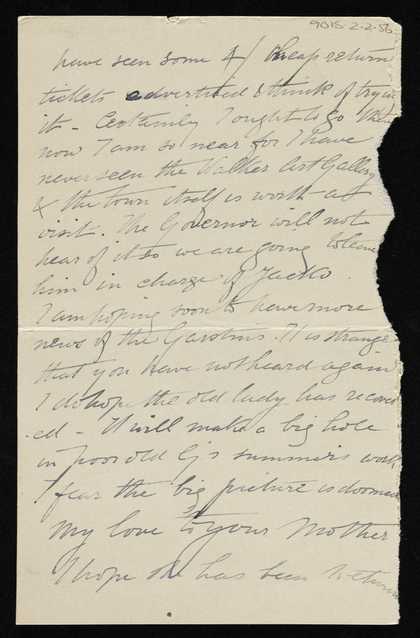 9015-2-2-56
have seen some 4/ cheap return
tickets advertised & think of trying
it - Certainly I ought to go
now I am so near for I have
never seen the Walker Art Gallery
& the town itself is worth a
visit. The Governor will not
hear of it so we are going to leave
him in charge of Jacko.
I am hoping soon to have more
news of the Garstins. It is strange
that you have not heard again
I do hope the old lady has recover
-ed - It will make a big hole
in poor old G's summer's work
I fear the big picture is doomed
My love to your Mother
I hope she has been